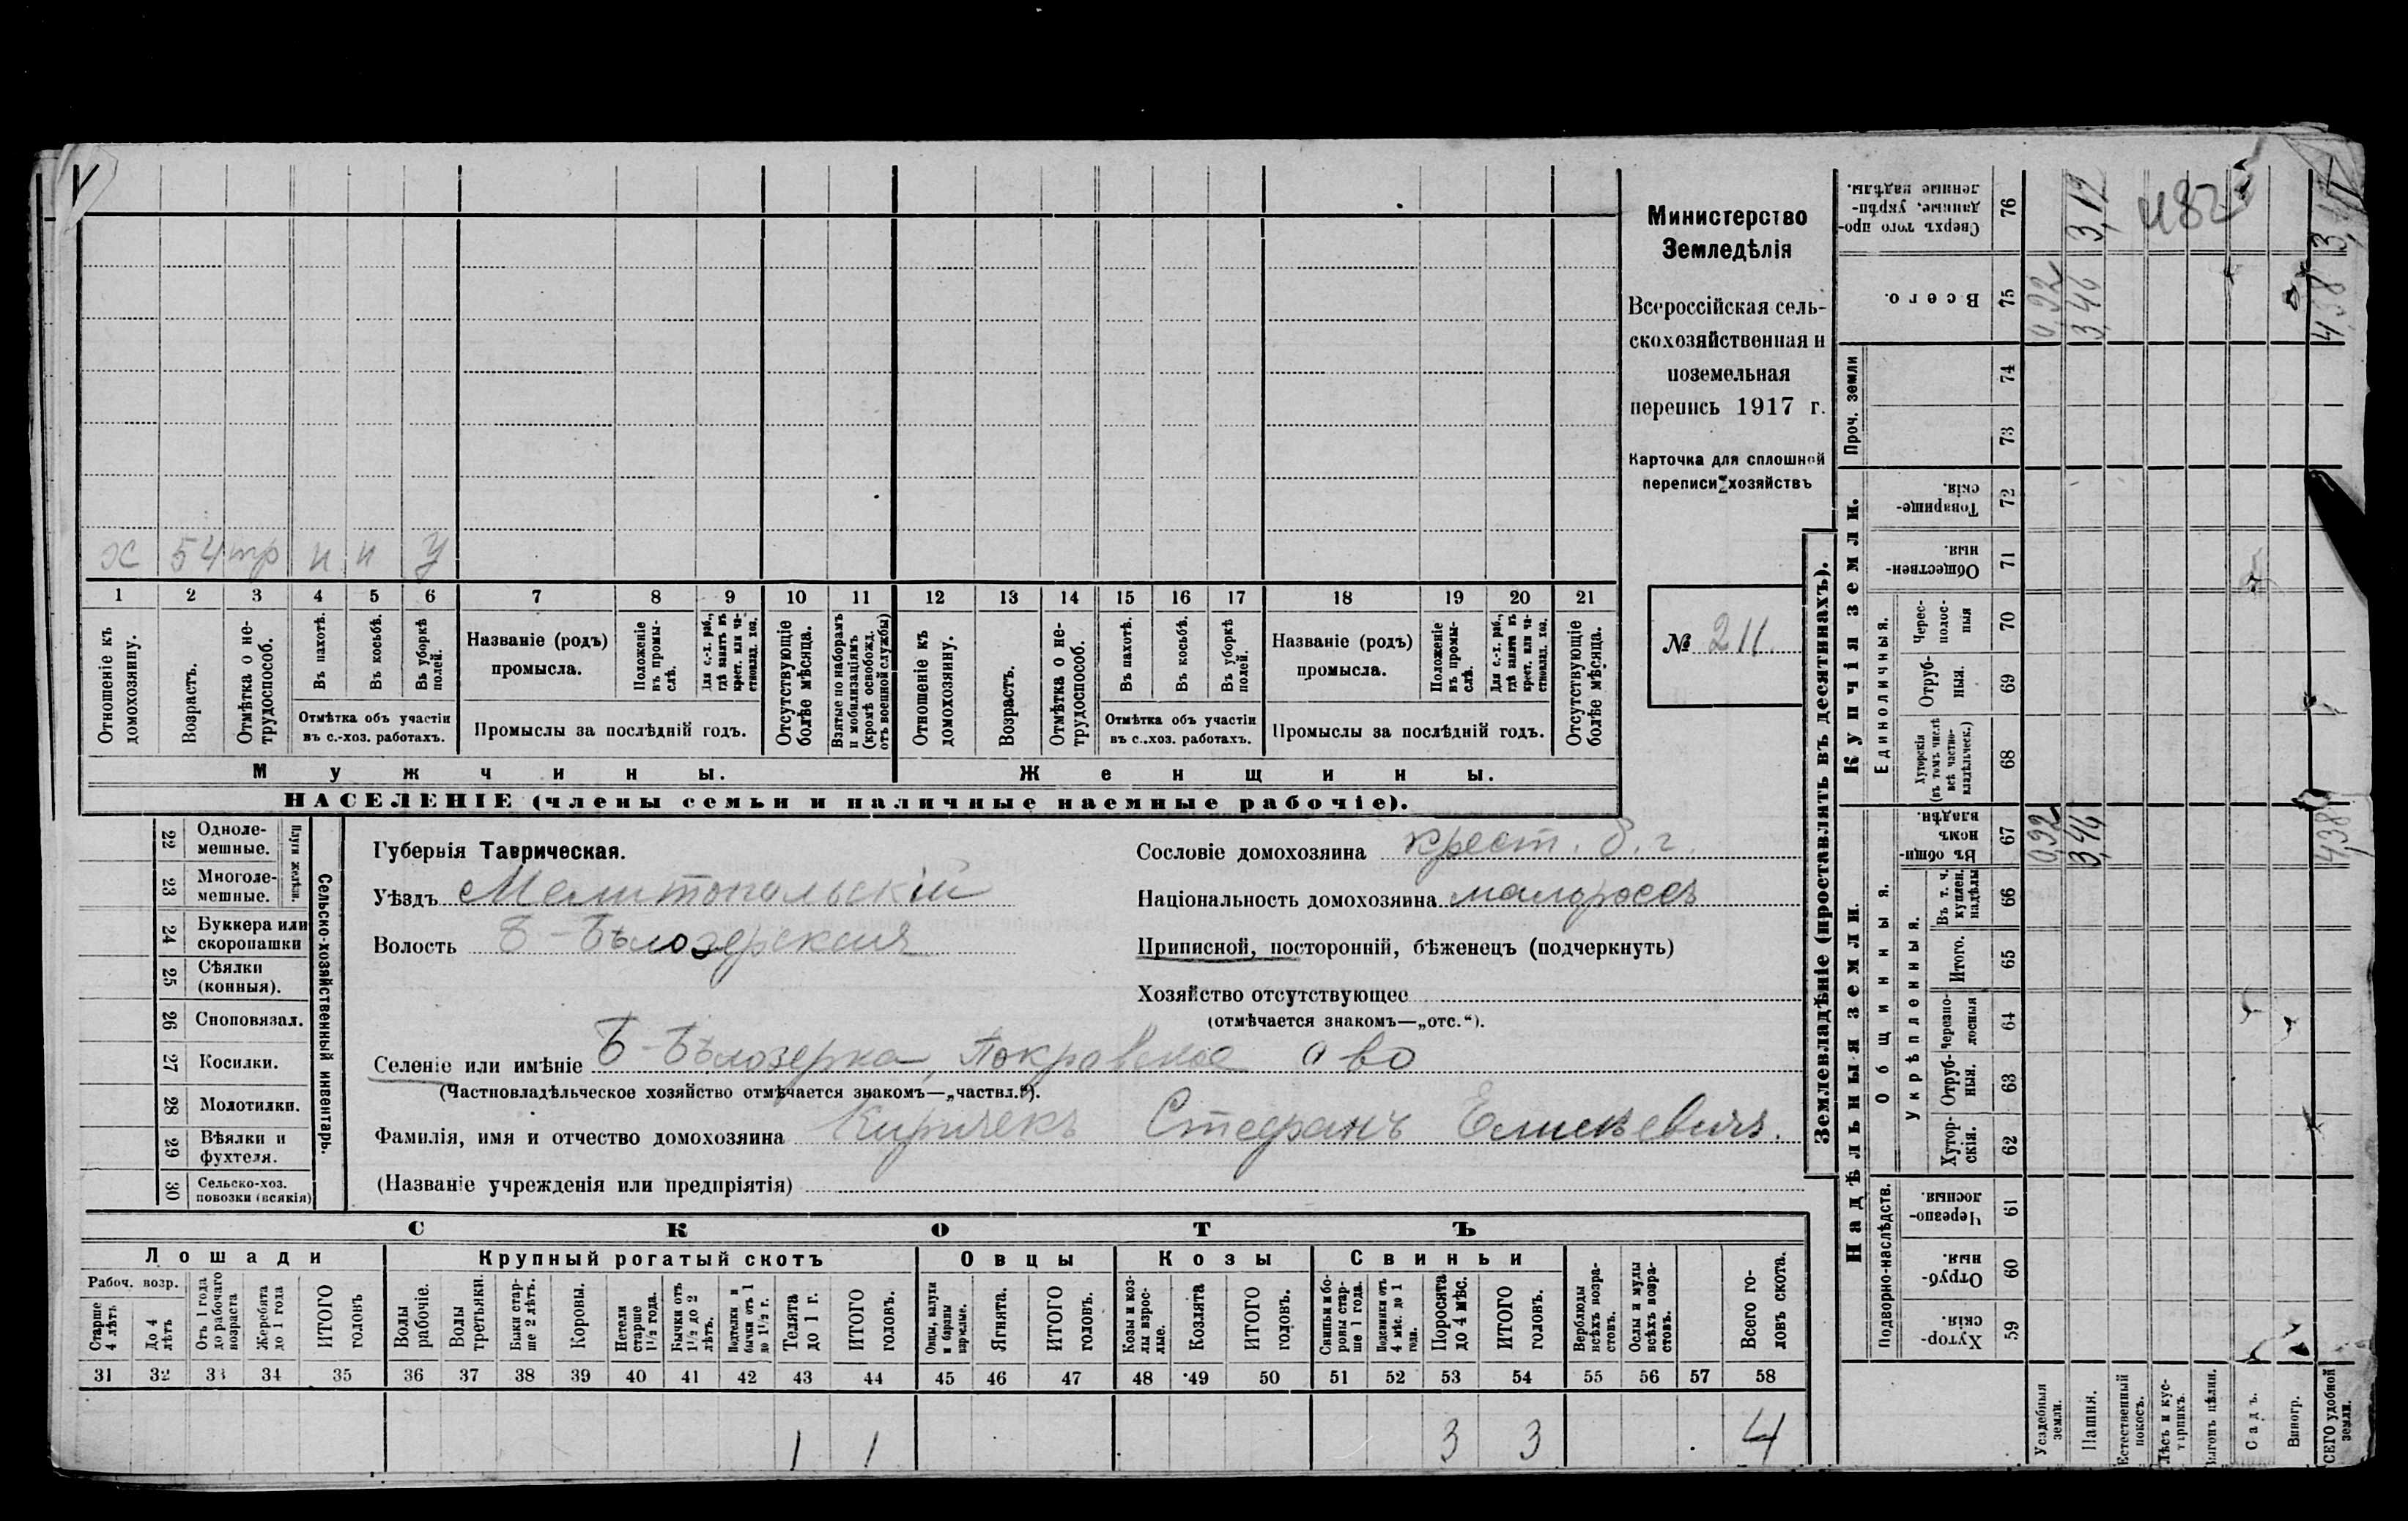 х 54 тр н н У
1 2 3 4 5 6 7 8 9 10 11 12 13 14 15 16 17 18 19 20 21
Отношеніе къ домохозяину.
Возрастъ.
Отмѣтка о не-трудоспособ.
Въ пахотѣ.
Въ косьбѣ.
Въ уборкѣ полей.
Отмѣтка объ участіи
въ с.-хоз. работахъ.
Названіе (родъ)
промысла.
Положеніе въ промы-слѣ.
Для с.-х. раб., гдѣ занятъ въ крест. или ча-стновлад. хоз.
Промыслы за послѣдній годъ.
Отсутствующіе болѣе мѣсяца.
Взятые по наборамъ и мобилизаціямъ (кромѣ освобожд. отъ военной службы)
Отношеніе къ домохозяину.
Возрастъ.
Отмѣтка о не-трудоспособ.
Въ пахотѣ.
Въ косьбѣ.
Въ уборкѣ полей.
Отмѣтка объ участіи
въ с.-хоз. работахъ.
Названіе (родъ)
промысла.
Положеніе въ промы-слѣ.
Для с.-х. раб., гдѣ занята въ крест. или ча-стновлад. хоз.
Промыслы за послѣдній годъ.
Отсутствующіе болѣе мѣсяца.
Мужчины.
Женщины.
НАСЕЛЕНІЕ (члены семьи и наличные наемные рабочіе).
Министерство
Земледѣлія
Всероссійская сель-
скохозяйственная и
поземельная
перепись 1917 г.
Карточка для сплошной
переписи хозяйствъ
№ 211.
22 Одноле-мешные.
23 Многоле-мешные.
Плуги желѣзн.
24 Буккера или скоропашки
25 Сѣялки (конныя).
26 Сноповязал.
27 Косилки.
28 Молотилки.
29 Вѣялки и фухтеля.
30 Сельско-хоз. повозки (всякія)
Сельско-хозяйственный инвентарь.
Губернія Таврическая.
Уѣздъ Мелитопольскій
Волость Б-Бѣлозерская
Сословіе домохозяина крест. б. г.
Національность домохозяина малороссъ
Приписной, посторонній, бѣженецъ (подчеркнуть)
Хозяйство отсутствующее
(отмѣчается знакомъ—„отс.“).
Селеніе или имѣніе Б-Бѣлозерка, Покровское о во
(Частновладѣльческое хозяйство отмѣчается знакомъ—„частвл.“).
Фамилія, имя и отчество домохозяина Киричекъ Стефанъ
(Названіе учрежденія или предпріятія)
СКОТЪ
Лошади
Крупный рогатый скотъ
Овцы
Козы
Свиньи
Рабоч. возр.
Старше 4 лѣтъ
До 4 лѣтъ
Отъ 1 года до рабочаго возраста
Жеребята до 1 года
ИТОГО головъ
Волы рабочіе.
Волы третьяки.
Быки стар-ше 2 лѣтъ.
Коровы.
Нетели старше 1½ года.
Бычки отъ 1½ до 2 лѣтъ.
Подтелки и бычки отъ 1 до 1½ г.
Телята до 1 г.
ИТОГО головъ.
Овцы, валухи и бараны взрослые.
Ягнята.
ИТОГО головъ.
Козы и коз-лы взрос-лые.
Козлята
ИТОГО головъ.
Свиньи и бо-ровы стар-ше 1 года.
Подсвинки отъ 4 мѣс. до 1 года.
Поросята до 4 мѣс.
ИТОГО головъ.
Верблюды всѣхъ возра-стовъ.
Ослы и мулы всѣхъ возра-стовъ.
Всего го-ловъ скота.
31 32 33 34 35 36 37 38 39 40 41 42 43 44 45 46 47 48 49 50 51 52 53 54 55 56 57 58
1 1 3 3 4
Землевладѣніе (проставлять въ десятинахъ).
Надѣльныя земли.
Купчія земли.
Проч. земли
Подворно-наслѣдств.
Общинныя.
Укрѣпленныя.
Единоличныя.
Сверхъ того про-данные, укрѣп-ленные надѣлы. 76
Всего. 75
74
73
Товарище-скія. 72
Обществен-ныя. 71
Черес-полос-ныя 70
Отруб-ныя. 69
Хуторскія (въ томъ числѣ всѣ частно-владѣльческ.) 68
Въ общин-номъ владѣн. 67
Въ т. ч. куплен. надѣлы 66
Итого. 65
Черезпо-лосныя 64
Отруб-ныя. 63
Хутор-скія. 62
Черезпо-лосныя. 61
Отруб-ныя. 60
Хутор-скія. 59
Усадебныя земли.
Пашня.
Естественный покосъ.
Лѣсъ и кус-тарникъ.
Выгонъ цѣлин.
Садъ.
Виногр.
ВСЕГО удобной земли.
0,92 3,46 4,38
0,92 3,46 4,38
3,12
482